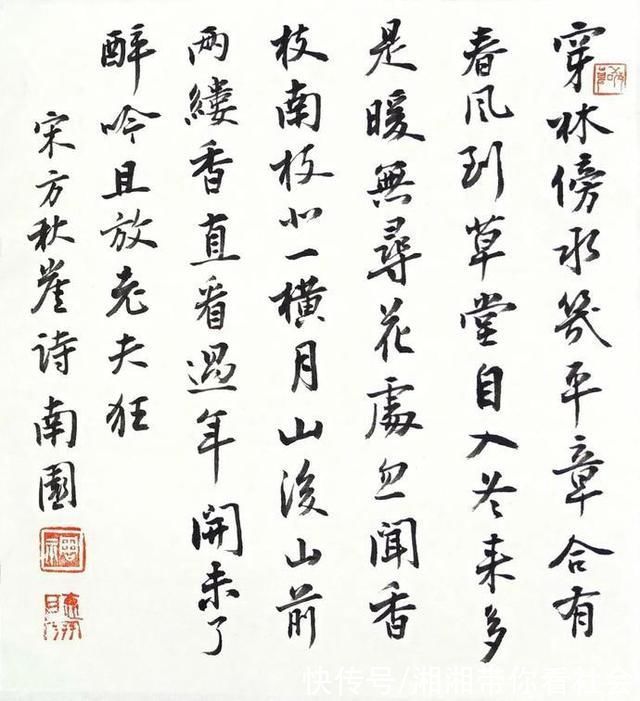 穿林傍水幾平章合有
春风到草堂自入冬来多
是暖無尋花處忽聞香
枝南枝北一橫月山後山前
两縷香直看過年開未了
醉吟且放老夫狂
宋方秋崖诗南園
快传号/湘湘带你看社会